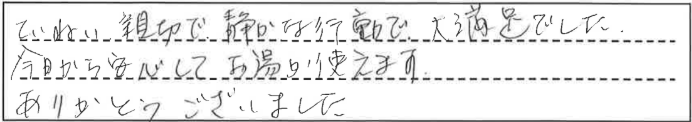 ていねい 親切で 静かな行動で 大満足でした.
今日から安心して お湯が使えます.
ありがとう ございました